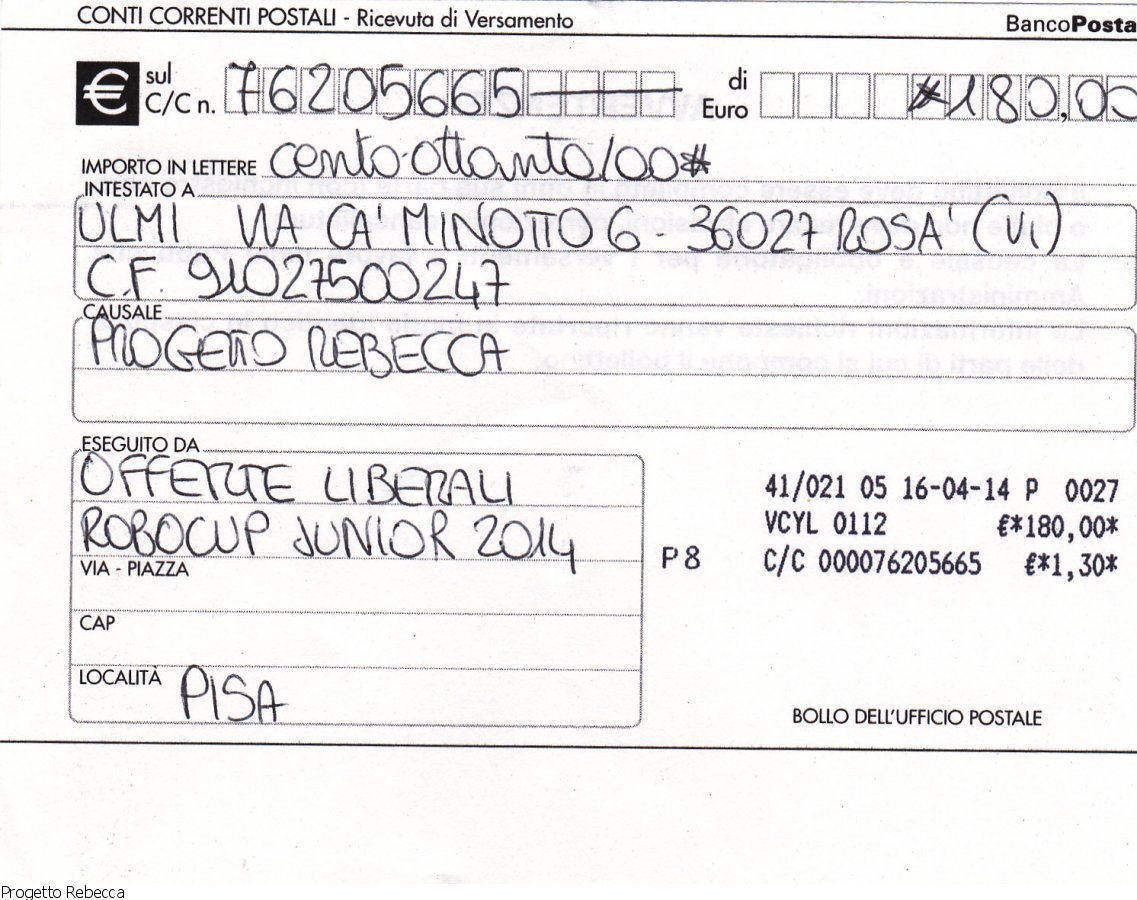 CONTI CORRENTI POSTALI - Ricevuta di Versamento BancoPosta
€ sul C/C n. 76205665 di Euro *180,00
IMPORTO IN LETTERE cento-ottanta/00#
INTESTATO A
ULMI VIA CA' MINOTTO 6 36027 ROSA (VI)
C.F. 91027500247
CAUSALE
PROGETTO REBECCA
ESEGUITO DA
OFFERTE LIBERALI
ROBOCUP JUNIOR 2014
VIA - PIAZZA
CAP
LOCALITÀ PISA
41/021 05 16-04-14 P 0027
VCYL 0112 €*180,00*
P 8 C/C 000076205665 €*1,30*
BOLLO DELL'UFFICIO POSTALE
Progetto Rebecca